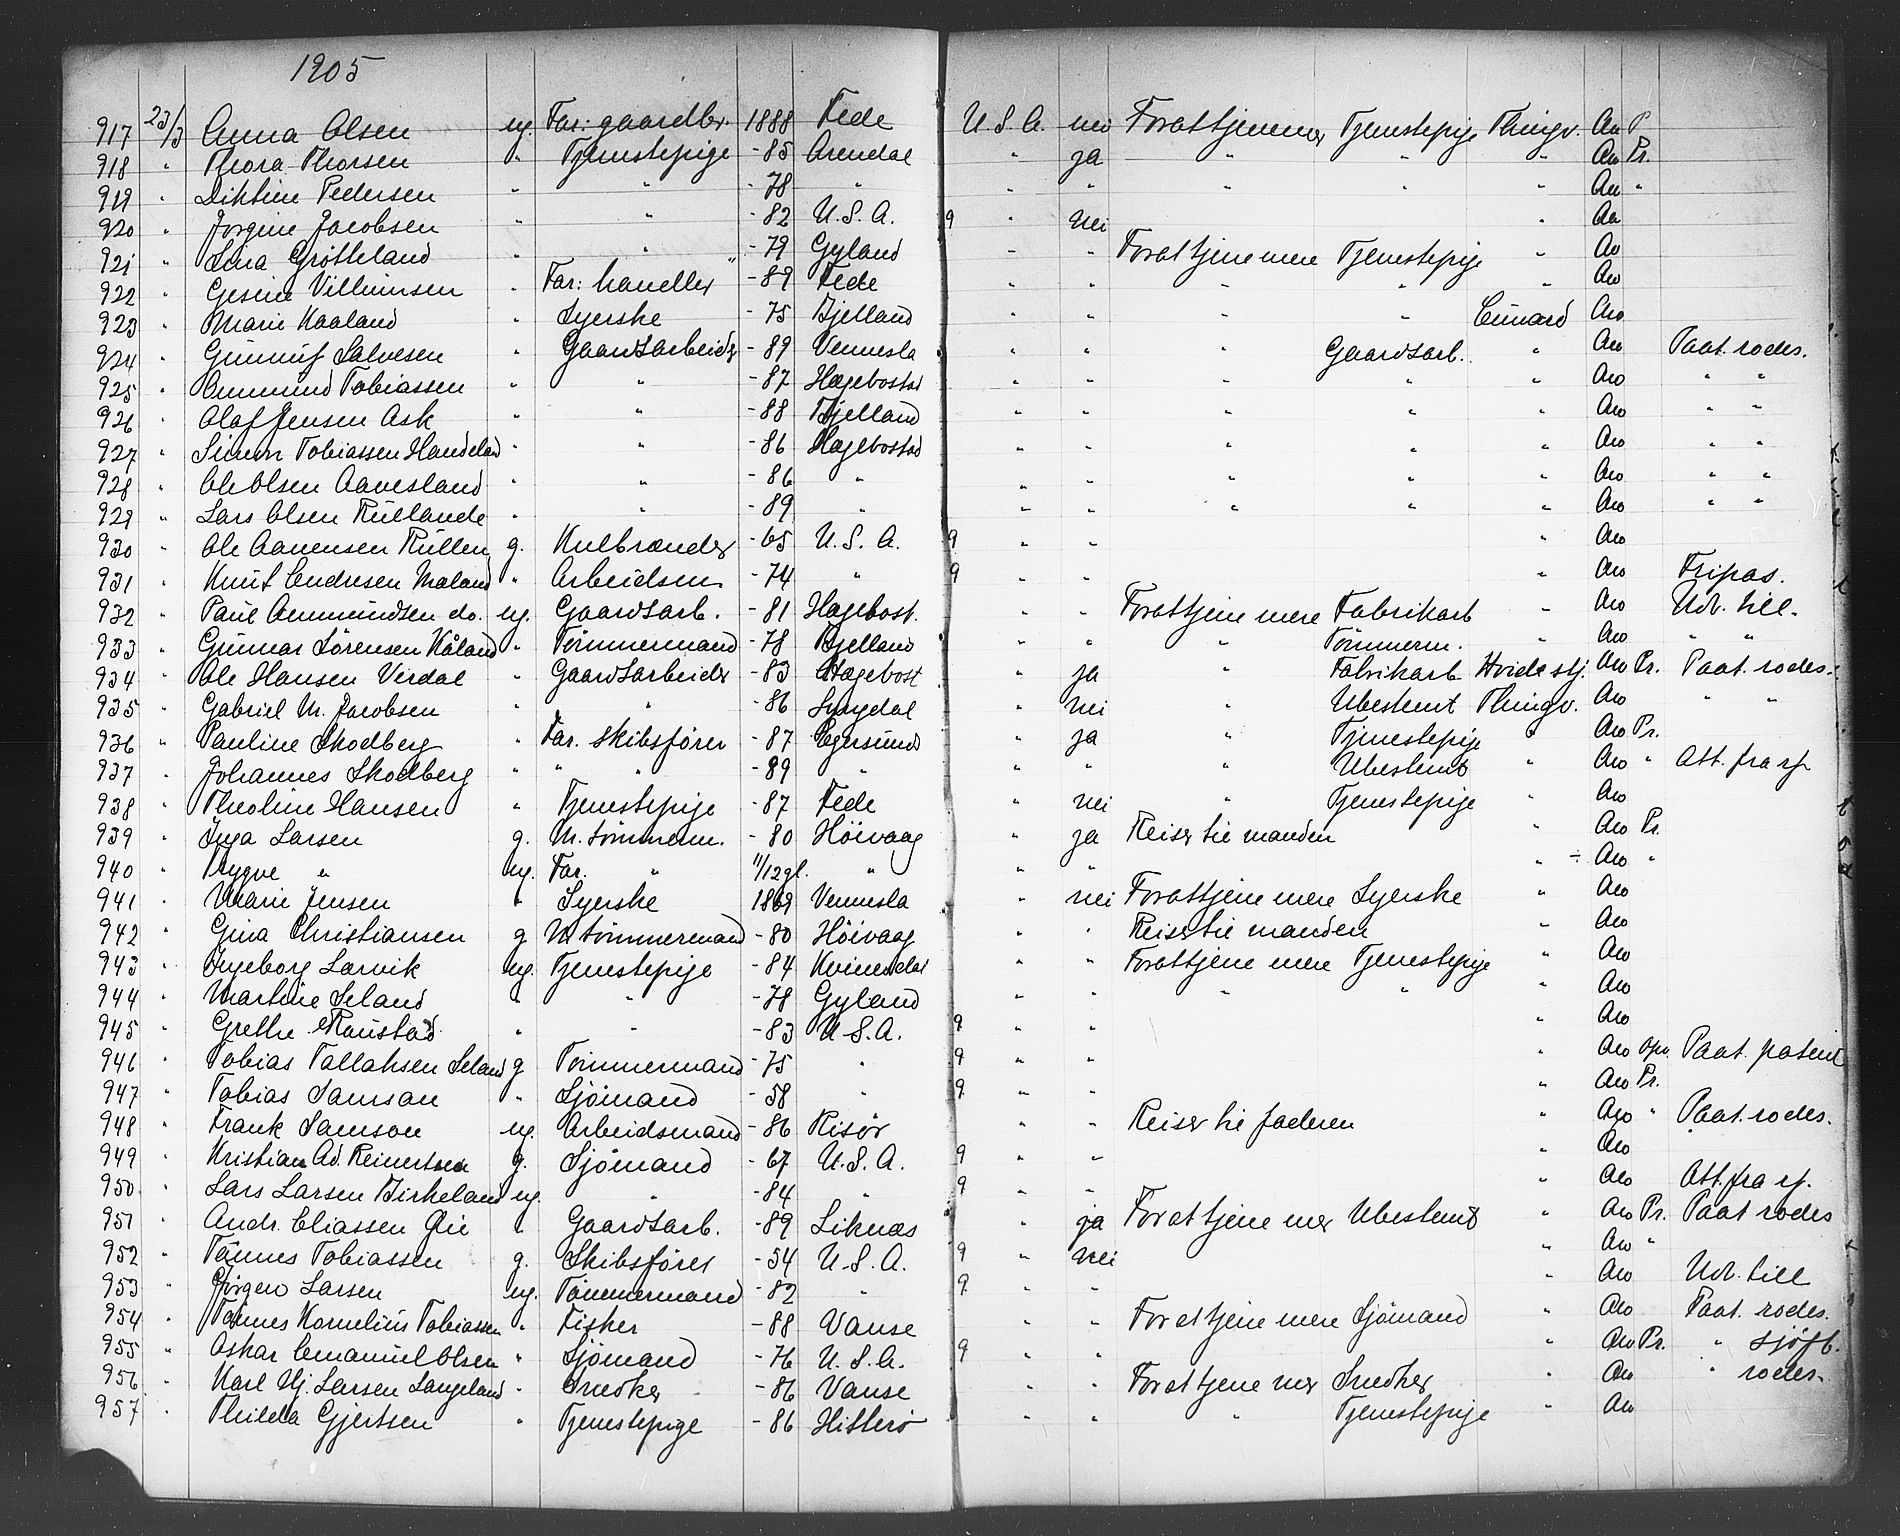 1905
917 23/3 Anna Olsen ug. Far: gaardbr. 1888 Fede U.S.A. nei Forattjenemer Tjenestepige Thingv. Aw P
918 " Thora Thorsen " Tjenestepige -85 Arendal " ja " " " Aw Pr.
919 " Diktine Pedersen " " -78 " " " " " " Aw "
920 " Jorgine Jacobsen " " -82 U.S.A. 9 " nei " Aw
921 " Lina Grötteland " " -79 Gyland " " Forattjene mere Tjenestepige " Aw
922 " Gesine Villumsen " Far: handler " -89 Fede " " " " " Aw
923 " Marie Haaland " Syerske -75 Bjelland " " " " Cunard Aw
924 " Gunnuf Salvesen " Gaardsarbeider -89 Vennesla " " " Gaardsarb. " Aw Paat. rodes.
925 " Ommund Tobiassen " " -87 Hægebostad " " " " " Aw " "
926 " Olaf Jensen Ask " " -88 Bjelland " " " " " Aw " "
927 " Simon Tobiassen Handeland " " -86 Hægebostad " " " " " Aw " "
928 " Ole Olsen Aavesland " " -86 " " " " " " Aw " "
929 " Lars Olsen Rullande " " -89 " " " " " " Aw " "
930 " Ole Aanensen Rullen g. Kulbrænder -65 U.S.A. 9 " " " Aw
931 " Knut Andresen Maland " Arbeidsm. -74 " 9 " " " Aw Fripas.
932 " Paul Ommundsen do. ug. Gaardsarb. -81 Hægebost. " " Forattjene mere Fabrikarb " Aw Udr. till.
933 " Gunnar Sörensen Kåland " Tömmermand -78 Bjelland " " " Tömmerm. " Aw " "
934 " Ole Hansen Verdal " Gaardsarbeider -83 Hægebost " ja " Fabrikarb Hvide stj. Aw Pr. Paat. rodes.
935 " Gabriel M. Jacobsen " " -86 Lyngdal " nei " Ubestemt Thingv. Aw " "
936 " Pauline Skodberg " Far. skibsfører -87 Egersund " ja " Tjenestepige " Aw Pr.
937 " Johannes Skodberg " " " -89 " " " " Ubestemt " Aw " Att. fra sf
938 " Theoline Hansen " Tjenestepige -87 Fede " nei " Tjenestepige " Aw
939 " Inga Larsen g. M. tömmerm. -80 Höivaag " ja Reiser til manden " Aw Pr.
940 " Trygve " ug. Far. " 11/12 gl. " " " " ÷ Aw "
941 " Marie Jensen " Syerske 1869 Vennesla " nei Forattjene mere Syerske " Aw
942 " Gina Christiansen g. M tömmermand -80 Höivaag " " Reiser til manden " Aw
943 " Ingeborg Larvik ug. Tjenestepige -84 Kvinesdal " " Forattjene mere Tjenestepige " Aw
944 " Martine Seland " " -78 Gyland " " " " " Aw
945 " Grethe Raustad " " -83 U.S.A. 9 " " " Aw
946 " Tobias Tallaksen Seland g Tömmermand -75 " 9 " " " Aw Opv. Paat. patent
947 " Tobias Samson " Sjömand -58 " 9 " " " Aw Pr.
948 " Frank Samson ug. Arbeidsmand -86 Risör " " Reiser til faderen " Aw " Paat. rodes.
949 " Kristian Ad. Reinertsen g. Sjömand -67 U.S.A. 9 " " " Aw
950 " Lars Larsen Birkeland ug. " -84 " 9 " " " Aw Att. fra sf.
951 " Andr. Eliassen Øie " Gaardsarb. -89 Liknæs " ja Forattjene mer Ubestemt " Aw Pr. Paat rodes
952 " Tönnes Tobiassen g. Skibsfører -54 U.S.A. 9 " nei " Aw "
953 " Jörgen Larsen ug. Tömmermand -82 " 9 " " " Aw Udr. till
954 " Tönnes Kornelius Tobiassen " Fisker -88 Vanse " " Forattjene mere Sjömand " Aw Paat. rodes.
955 " Oskar Emanuel Olsen " Sjömand -76 U.S.A. 9 " " " Aw Pr. " sjöfb.
956 " Karl Hj. Larsen Langeland " Snedker -86 Vanse " " Forattjene mer Snedker " Aw " rodes.
957 " Thilda Gjertsen " Tjenestepige -86 Hitterö " " " Tjenestepige " Aw